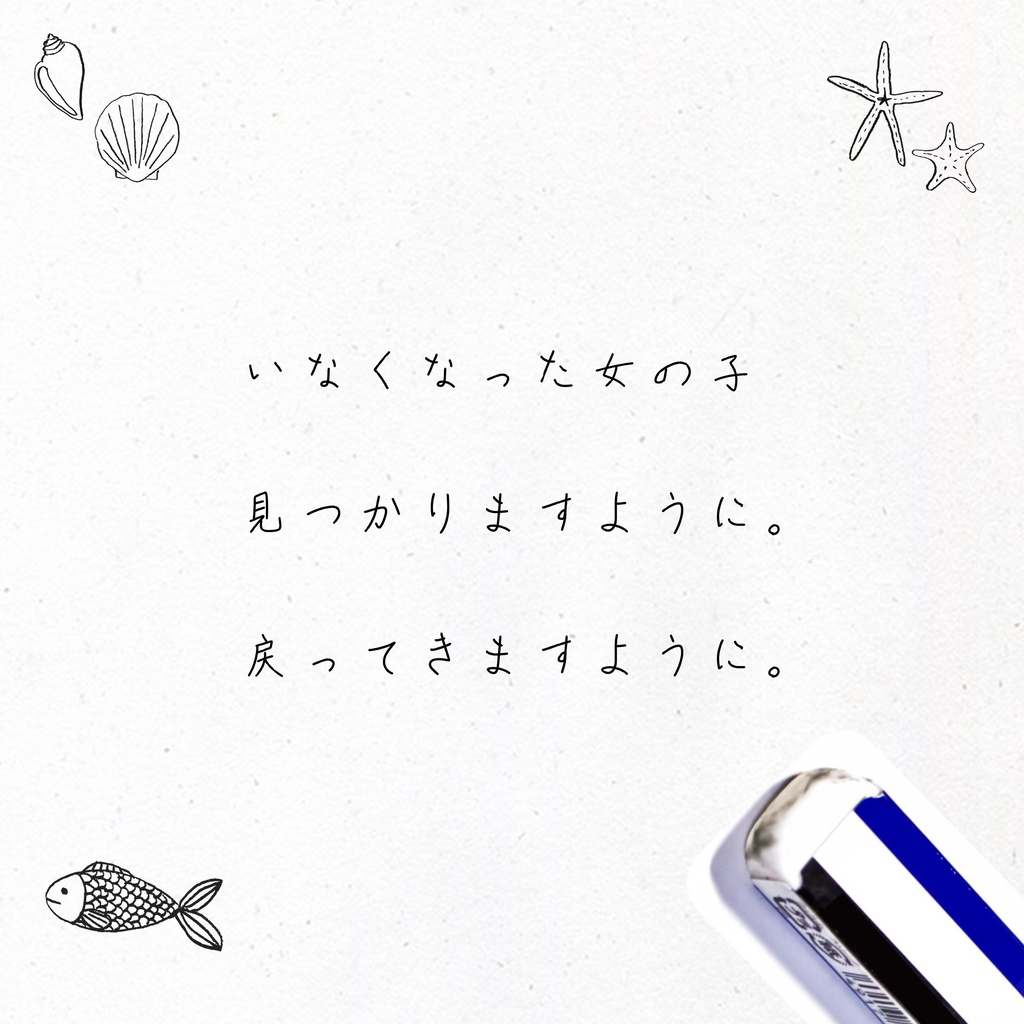 いなくなった女の子
見つかりますように。
戻ってきますように。